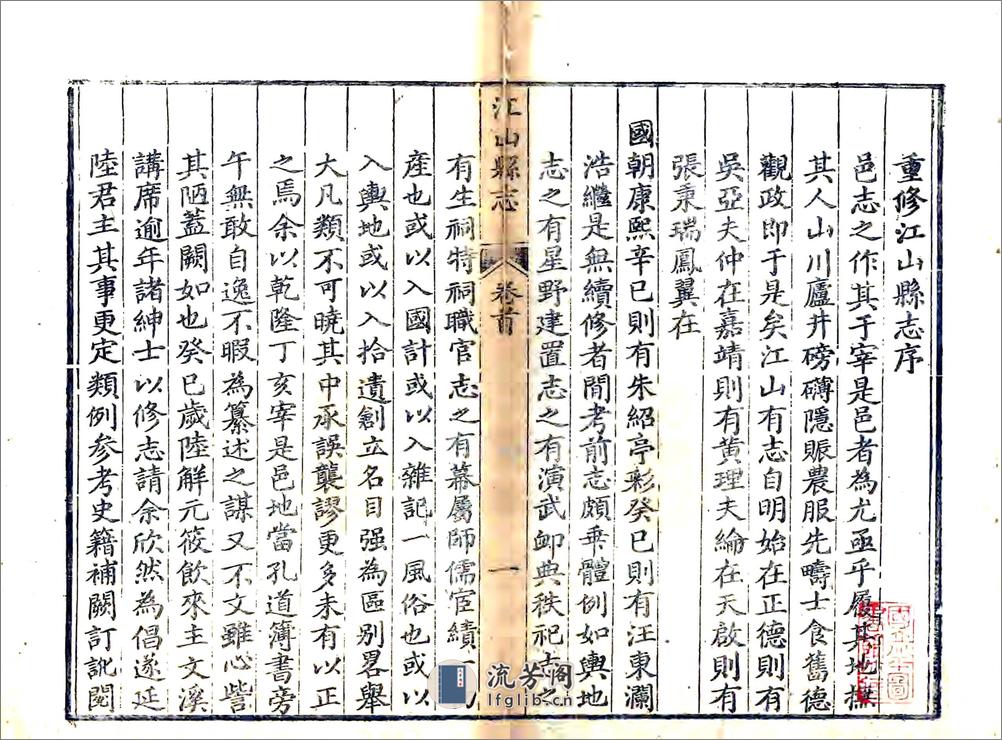 重修江山縣志序
邑志之作其于宰是邑者為尤亟乎履其地撫
其人山川廬井磅礴隱賑農服先疇士食舊德
觀政即于是矣江山有志自明始在正德則有
吳亞夫仲在嘉靖則有黃理夫綸在天啟則有
張秉瑞鳳翼在
國朝康熙辛巳則有朱紹亭彩癸巳則有汪東瀾
浩繼是無續修者閒考前志頗乖體例如輿地
志之有星野建置志之有演武䘏典秩祀志之
江山縣志 卷首 一
有生祠特祠職官志之有幕屬師儒宦績一
產也或以入國計或以入雜記一風俗也或以
入輿地或以入拾遺創立名目强為區別畧舉
大凡類不可曉其中承誤襲謬更多未有以正
之焉余以乾隆丁亥宰是邑地當孔道簿書旁
午無敢自逸不暇為纂述之謀又不文雖心訾
其陋蓋闕如也癸巳歲陸解元筱飲來主文溪
講席逾年諸紳士以修志請余欣然為倡遂延
陸君主其事更定類例參考史籍補闕訂訛閱
流芳閣
lfglib.cn